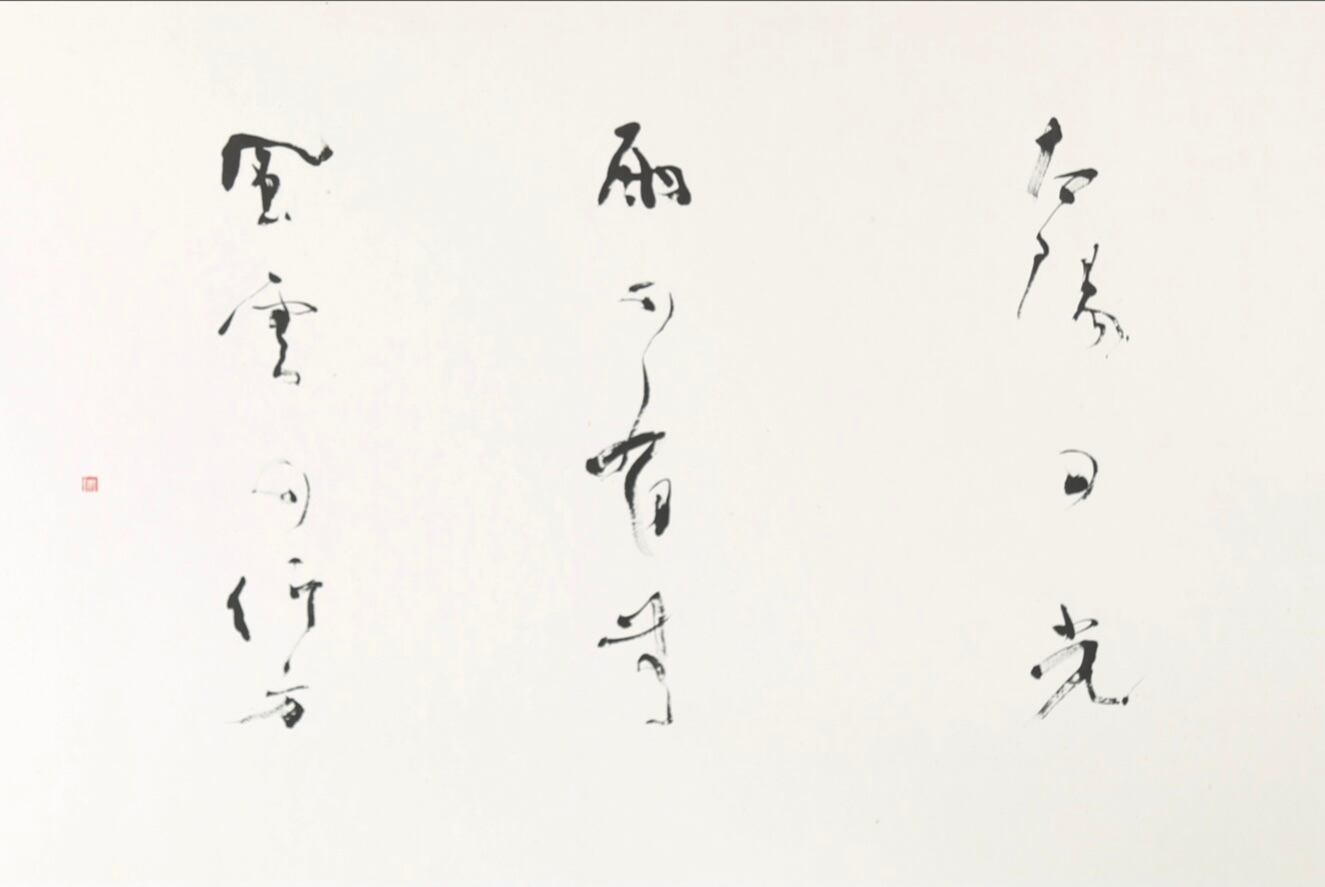 太陽の光
雨の
風雲の行方